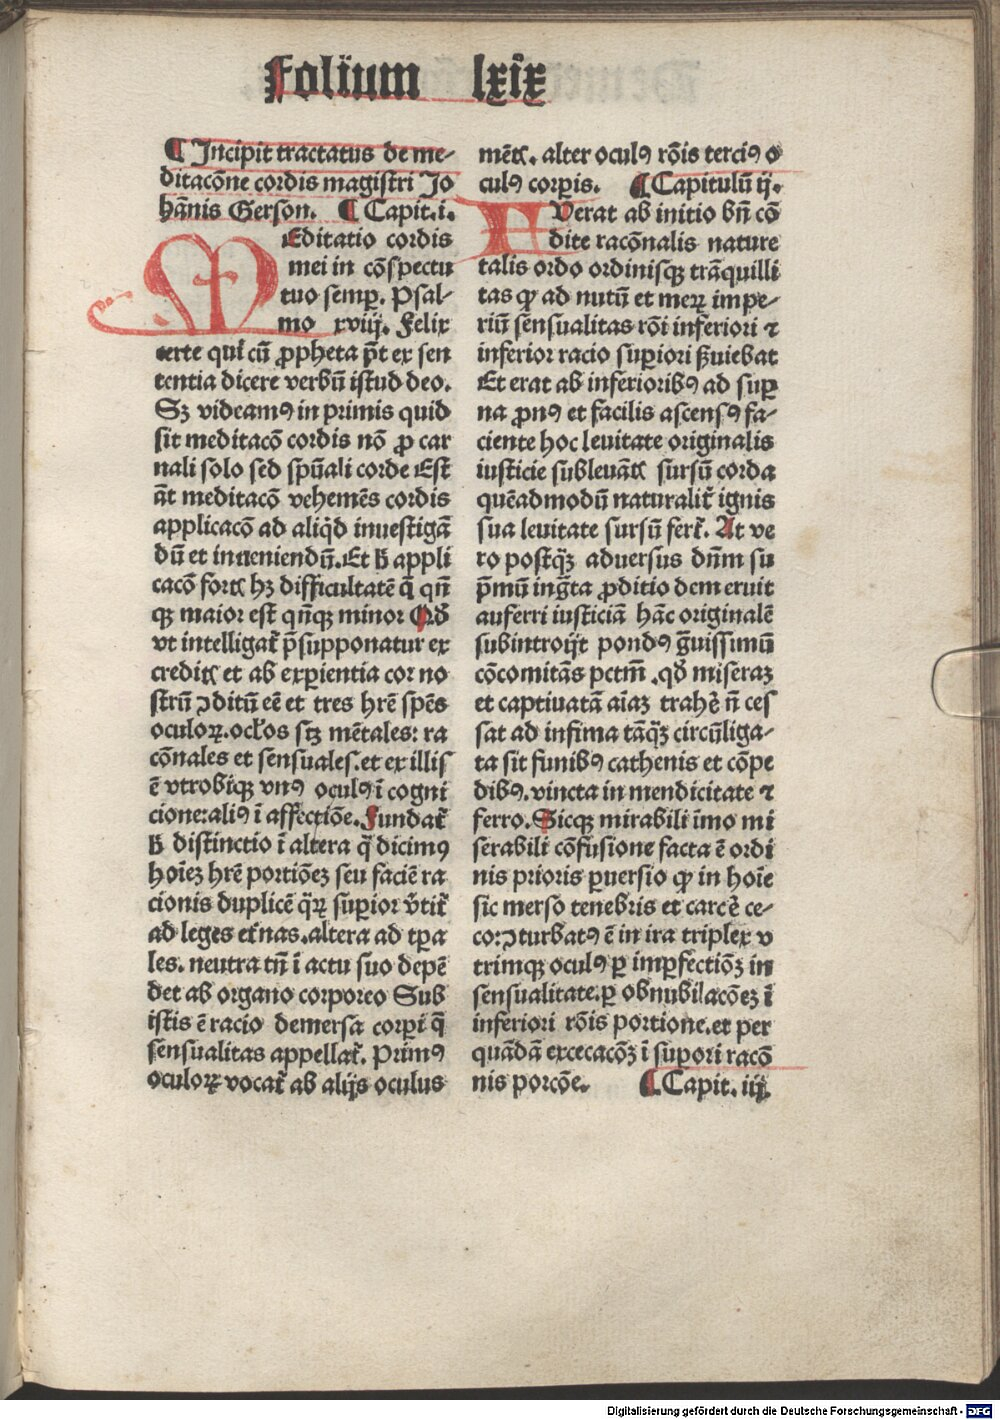 Folium lxix
¶ Incipit tractatus de me-
ditacōne cordis magistri Jo
hānis Gerson. ¶ Capit. i.
MEditatio cordis
mei in cōspectu
tuo semꝑ. Psal-
mo xviij. Felix
certe qui cū ꝓpheta pōt ex sen
tentia dicere verbū istud deo.
Sꝫ videamꝰ in primis quid
sit meditacō cordis nō ꝓ car
nali solo sed spūali corde Est
āt meditacō vehemēs cordis
applicacō ad aliqd̄ inuestigā
dū et inueniendū. Et h̄ appli
cacō fortꝭ hꝫ difficultatē q̄ qn̄
qꝫ maior est qn̄qꝫ minor Qd̄
vt intelligat̄ p̄supponatur ex
creditꝭ et ab exꝑientia cor no
strū ꝯditū eē et tres hr̄e spēs
oculoꝝ. ocl̓os sꝫ mētales: ra
cōnales et sensuales. et ex illis
ē vtrobiqꝫ vnꝰ oculꝰ ī cogni
cione: aliꝰ ī affectiōe. Fundat̄
h̄ distinctio ī altera q̄ dicimꝰ
hoīeꝫ hr̄e portiōeꝫ seu faciē ra
cionis duplicē q̄ꝝ suꝑior v̄tit̄
ad leges et̄nas. altera ad tꝑa
les. neutra tn̄ ī actu suo depē
det ab organo corporeo Sub
istis ē racio demersa corꝑi q̄
sensualitas appellat̄. Primꝰ
oculoꝝ vocat̄ ab alijs oculus
mētꝭ. alter oculꝰ rōis terciꝰ o
culꝰ corꝑis. ¶ Capitulū ij.
EVerat ab initio bn̄ cō
dite racōnalis nature
talis ordo ordinisqꝫ trāquilli
tas ꝙ ad nutū et merꝝ impe-
riū sēnsualitas rōi inferiori ⁊
inferior racio suꝑiori ẜuiebat
Et erat ab inferioribꝰ ad suꝑ
na ꝓnꝰ et facilis ascensꝰ fa-
ciente hoc leuitate originalis
iusticie subleuātꝭ sursū corda
quēadmodū naturalit̄ ignis
sua leuitate sursū fert̄. At ve
ro postq̄ꝫ aduersus dn̄m su
p̄mū ingͣta ꝓditio dem eruit
auferri iusticiā hāc originalē
subintroijt pondꝰ gͣuissimū
cōcomitās pctm̄. qd̄ miseraꝫ
et captiuatā aīaꝫ trahe̓ n̄ ces
sat ad infima tāq̄ꝫ circūliga-
ta sit funibꝰ cathenis et cōpe
dibꝰ. vincta in mendicitate ⁊
ferro. Sicqꝫ mirabili imo mi
serabili cōfusione facta ē ordi
nis prioris ꝑuersio ꝙ in hoīe
sic merso tenebris et carce̓ ce-
co: ꝯturbatꝰ ē in ira triplex v
trimqꝫ oculꝰ ꝑ imꝑfectiōꝫ in
sensualitate. ꝑ obnubilacōeꝫ ī
inferiori rōis portione. et per
quādā excecacōꝫ ī suꝑori racō
nis porcōe. ¶ Capit. iij.
Digitalisierung gefördert durch die Deutsche Forschungsgemeinschaft - DFG